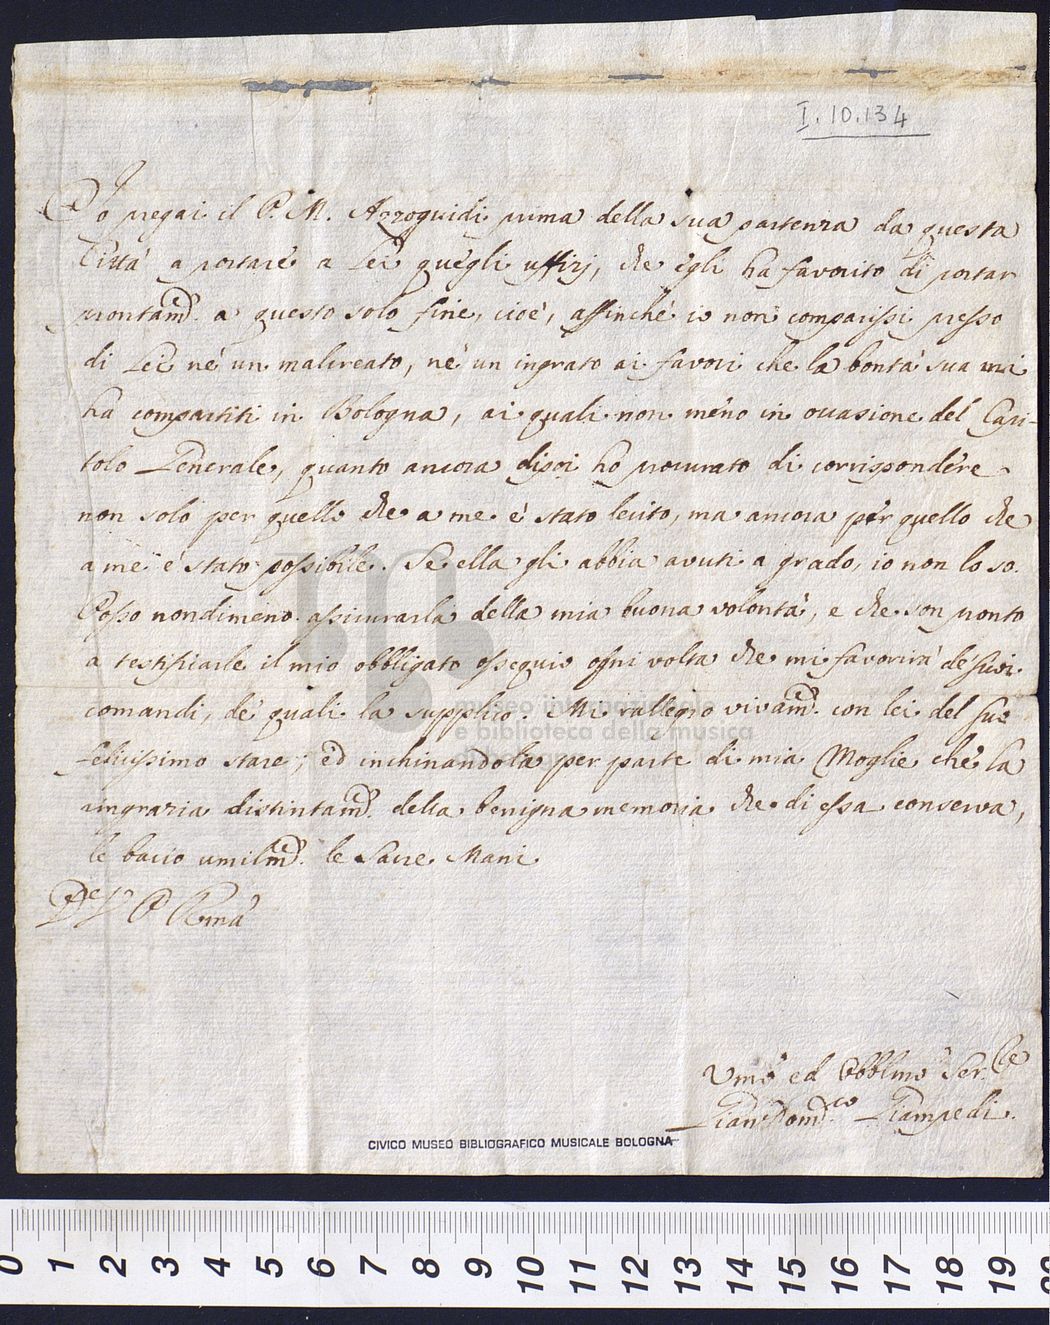 I.10.134
Io pregai il P. M. Azzoguidi prima della sua partenza da questa
Città a portare a Lei quegli uffizj, che egli ha favorito di portar
prontam.e a questo solo fine, cioè, affinché io non comparissi presso
di Lei né un malcreato, né un ingrato ai favori che la bontà sua mi
ha compartiti in Bologna, ai quali non meno in occasione del Capi-
tolo Generale, quanto ancora dipoi ho procurato di corrispondere
non solo per quello che a me è stato lecito, ma ancora per quello che
a me è stato possibile. Se ella gli abbia avuti a grado, io non lo so.
Posso nondimeno assicurarla della mia buona volontà, e che son pronto
a testificarle il mio obbligato ossequio ogni volta che mi favorirà de' suoi
comandi, de' quali la supplico. Mi rallegro vivam.e con lei del suo
felicissimo stare; ed inchinandola per parte di mia Moglie che la
ringrazia distintam.e della benigna memoria che di essa conserva,
le bacio umilm.e le Sacre Mani
P. Rma
Umo ed Obblmo Ser.le
Gian Dom.co Giampedi.
CIVICO MUSEO BIBLIOGRAFICO MUSICALE BOLOGNA
museo internazionale
e biblioteca della musica
di bologna
0 1 2 3 4 5 6 7 8 9 10 11 12 13 14 15 16 17 18 19